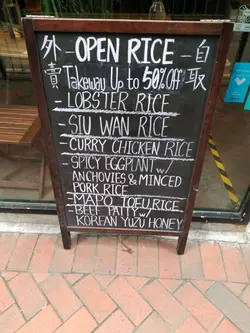 外賣
自取
OPEN RICE
Takeway Up to 50% Off
- LOBSTER RICE
- SIU WAN RICE
- CURRY CHICKEN RICE
- SPICY EGGPLANT w/
ANCHOVIES & MINCED
PORK RICE
- MAPO TOFU RICE
- BEEF PATTY w/
KOREAN YUZU HONEY